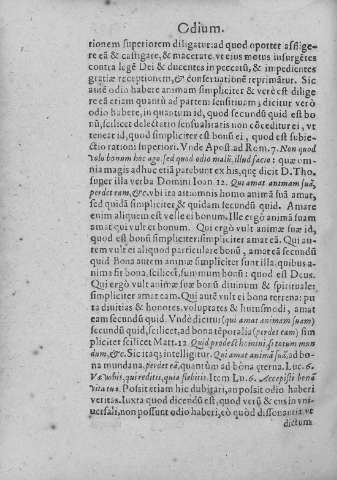 Odium.
tionem superiorem diligatur: ad quod oportet affige-
re eā & castigare, & macerare, vt eius motus insurgētes
contra legē Dei & ducentes in peccatū, & impedientes
gratiæ receptionem, & conseruationē reprimātur. Sic
autē odio habere animam simpliciter & verè est dilige
re eā etiam quantū ad partem sensitiuam; dicitur verò
odio habere, in quantum id, quod secundū quid est bo
nū, scilicet delectatio sensualitatis non cōceditur ei, vt
teneat id, quod simpliciter est bonū ei, quod est subie-
ctio rationi superiori. Vnde Apost. ad Rom. 7. Non quod
volo bonum hoc ago, sed quod odio malū, illud facio: quæ om
nia magis adhuc etiā patebunt ex his, quę dicit D. Tho.
super illa verba Domini Ioan 12. Qui amat animam suā,
perdet eam, &c. vbi ita ait: omnis homo animā suā amat,
sed quidā simpliciter, & quidam secundū quid. Amare
enim aliquem est velle ei bonum. Ille ergò animā suam
amat qui vult ei bonum. Qui ergò vult animæ suæ id,
quod est bonū simpliciter: simpliciter amat eā. Qui au-
tem vult ei aliquod particulare bonū, amat eā secundū
quid. Bona autem animæ simpliciter sunt illa, quibus a-
nima fit bona, scilicet, summum bonū: quod est Deus.
Qui ergò vult animæ suæ bonū diuinum & spirituale,
simpliciter amat eam. Qui autē vult ei bona terrena: pu
ta diuitias & honores, voluptates & huiusmodi, amat
eam secundū quid. Vndè dicitur (qui amat animam suam)
secundū quid, scilicet, ad bona tēporalia (perdet eam) sim
pliciter scilicet Matt. 12 Quid prodest homini, si totum mun
dum, &c. Sic itaq; intelligitur. Qui amat animā suā, ad bo
na mundana, perdet eā, quantùm ad bona ęterna. Luc. 6.
Væ vobis, qui ridetis, quia flebitis. Item Lu. 6. Accepisti bonā
vita tua. Posset etiam hic dubigari, an posset odio haberi
veritas. Iuxta quod dicendū est, quod verū & ens in vni-
uersali, non possunt odio haberi, eò quòd dissonantia vt
dictum